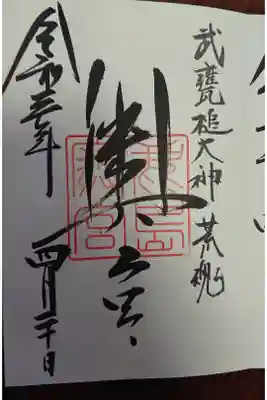 武甕槌大神 荒魂
奥宮
令和三年 四月二十日